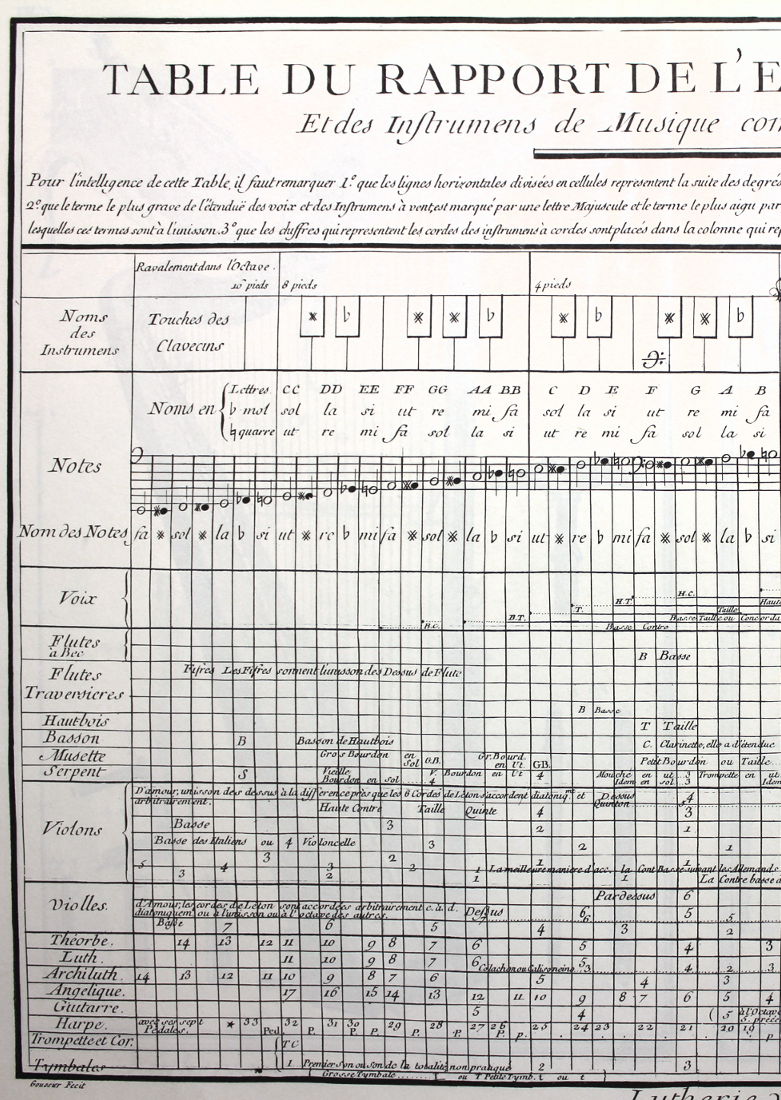 TABLE DU RAPPORT DE L'E
Et des Instrumens de Musique com
Pour l'intelligence de cette Table, il faut remarquer 1.º que les lignes horizontales divisées en cellules representent la suite des degrés
2.º que le terme le plus grave de l'étenduë des voix et des Instrumens à vent, est marqué par une lettre Majuscule et le terme le plus aigu par
lesquelles ces termes sont à l'unisson. 3.º que les chiffres qui representent les cordes des instrumens à cordes sont placés dans la colonne qui rep
Ravalement dans l'Octave.
16 pieds 8 pieds 4 pieds
Noms des Instrumens
Touches des Clavecins
Noms en
Lettres CC DD EE FF GG AA BB C D E F G A B
b mol sol la si ut re mi fa sol la si ut re mi fa
♮ quarre ut re mi fa sol la si ut re mi fa sol la si
Notes
Nom des Notes fa ※ sol ※ la b si ut ※ re b mi fa ※ sol ※ la b si ut ※ re b mi fa ※ sol ※ la b si
Voix
B.C. B.T. T. H.T. H.C.
Taille Haute
Basse Taille ou Concorda
Basse Contre
Flutes à Bec B Basse
Flutes Traversieres
Fifres Les Fifres sonnent l'unisson des Dessus de Flute
B Basse
Hautbois T Taille
Basson B Basson de Hautbois C. Clarinette, elle a d'étendue
Musette Gros Bourdon en Sol G.B. Gr. Bourd. en Ut GB. Petit Bourdon ou Taille
Serpent S Vieille Bourdon en sol V. 4 Bourdon en Ut 4 Mouche en ut 3 Trompette en ut
Idem en sol 3 Idem
Violons
D'amour, unisson des dessus à la difference près que les 6 Cordes de Leton s'accordent diatoniq.nt et
arbitrairement.
Dessus 4
Quinton 5
Haute Contre Taille Quinte 4 3
Basse 3 2 1
Basse des Italiens ou 4 Violoncelle 3 2 1
3 2 1
5 4 3 2 1 La meilleure maniere d'acc. la Cont Basse suivant les Allemands
3 2 1 La Contre basse a
Violles.
Pardessus 6
d'Amour, les cordes de Leton sont accordées arbitrairement c. à. d.
diatoniquem. ou à l'unisson ou à l'octave des autres.
Dessus 6 5 5
Basse 7 6 5 4 3 2
Théorbe. 14 13 12 11 10 9 8 7 6 5 4 3
Luth. 11 10 9 8 7 6 5 4 2 3
Colachon ou Calisoncino 3
Archiluth. 14 13 12 11 10 9 8 7 6 5 4 3
Angelique. 17 16 15 14 13 12 11 10 9 8 7 6 5 4
Guitarre. 5 4 5 à l'Octave
Harpe. avec ses sept Pédales. ★ 33 Ped 32 P. 31 30 P. P. 29 P. 28 P. 27 26 P. p. 25 24 23 22 21 20 19 p
Trompette et Cor. TC
Tymbales 1 Premier son ou son de la totalité non pratiqué 2 3
Grosse Tymbale T ou T Petite Tymb. t ou t
Gousseur Fecit
Lutherie